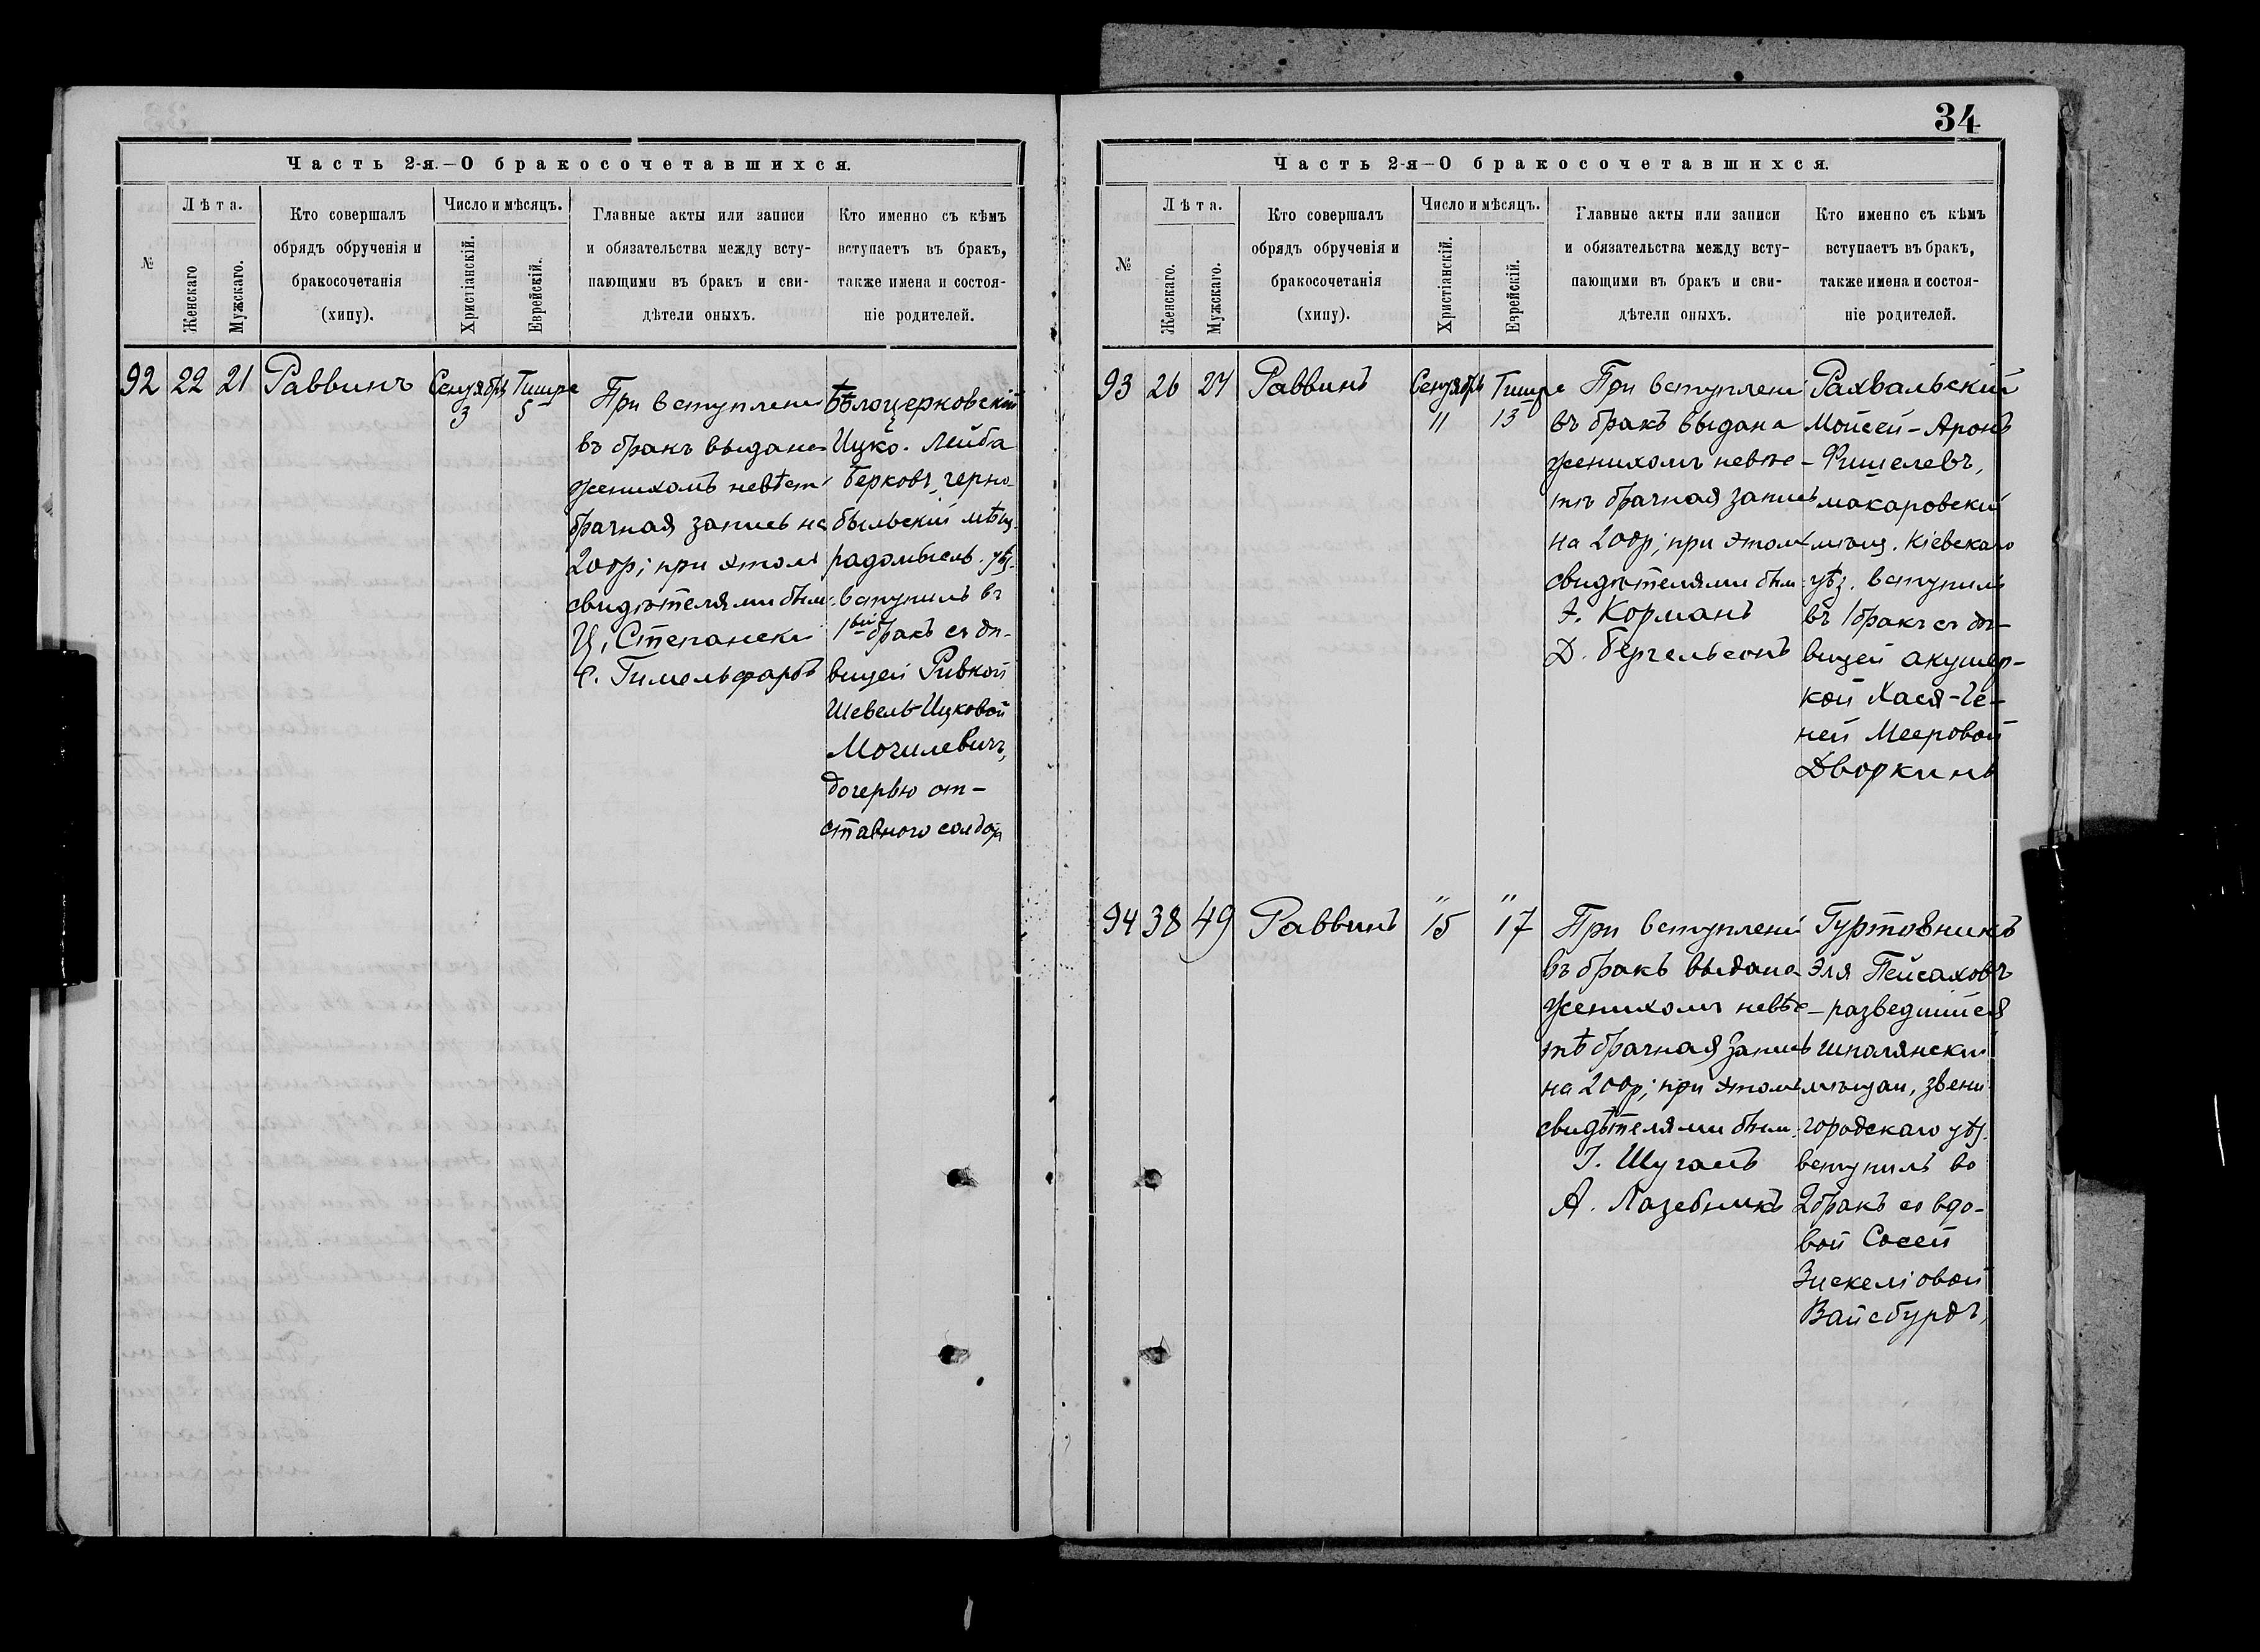 Часть 2-я.—О бракосочетавшихся.
№
Лѣта.
Женскаго
Мужскаго.
Кто совершалъ
обрядъ обрученія и
бракосочетанія
(хипу).
Число и мѣсяцъ.
Христіанскій.
Еврейскій.
Главные акты или записи
и обязательства между всту-
пающими въ бракъ и сви-
дѣтели оныхъ.
Кто именно съ кѣмъ
вступаетъ въ бракъ,
также имена и состоя-
ніе родителей.
92 22 21 Раввинъ
Сентябрь 3
Тишре 5
При вступлени
въ бракъ выдана
женихомъ невѣст
брачная запись на
200р; при этомъ
свидѣтелями были
Ц. Степански
С. Гимельфарбъ
Бѣлоцерковскій
Ицко-Лейба
Берковъ, черно-
быльскій мѣщ.
радомысль. уѣз.
вступилъ въ
1вый бракъ съ дѣ-
вицей Ривкой
Шевель-Ицковой
Могилевичъ,
дочерью от-
ставного солдата
34
Часть 2-я—О бракосочетавшихся.
№
Лѣта.
Женскаго.
Мужскаго.
Кто совершалъ
обрядъ обрученія и
бракосочетанія
(хипу).
Число и мѣсяцъ.
Христіанскій.
Еврейскій.
Главные акты или записи
и обязательства между всту-
пающими въ бракъ и сви-
дѣтели оныхъ.
Кто именно съ кѣмъ
вступаетъ въ бракъ,
также имена и состоя-
ніе родителей.
93 26 27 Раввинъ
Сентябрь 11
Тишре 13
При вступлени
въ бракъ выдана
женихомъ невѣс-
тѣ брачная запись
на 200р; при этомъ
свидѣтелями были
Э. Корманъ
Д. Бергельсонъ
Рахвальскій
Мойсей-Аронъ
Фишелевъ,
макаровскій
мѣщ. Кіевскаго
уѣз. вступилъ
въ 1 бракъ съ дѣ-
вицей акушер-
кой Хася-Ге-
ней Мееровой
Дворкинъ
94 38 49 Раввинъ
" 15
" 17
При вступлени
въ бракъ выдана
женихомъ невѣс-
тѣ брачная запись
на 200р; при этомъ
свидѣтелями были
І. Шугамъ
А. Лазебникъ
Гуртовникъ
Эля Пейсаховъ
разведшійся
шполянскій
мѣщан, звени
городскаго уѣз.
вступилъ во
2 бракъ со вдо-
вой Сосей
Зискеліовой
Вайсбурдъ,